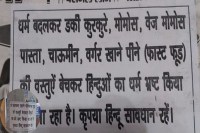 धर्म बदलकर डकी कुरकुरे, मोमोस, वेज मोमोस
पास्ता, चाऊमीन, वर्गर खाने पीने (फास्ट फूड)
की वस्तुऐं बेचकर हिन्दुओं का धर्म भ्रष्ट किया
जा रहा है। कृपया हिन्दू सावधान रहें।